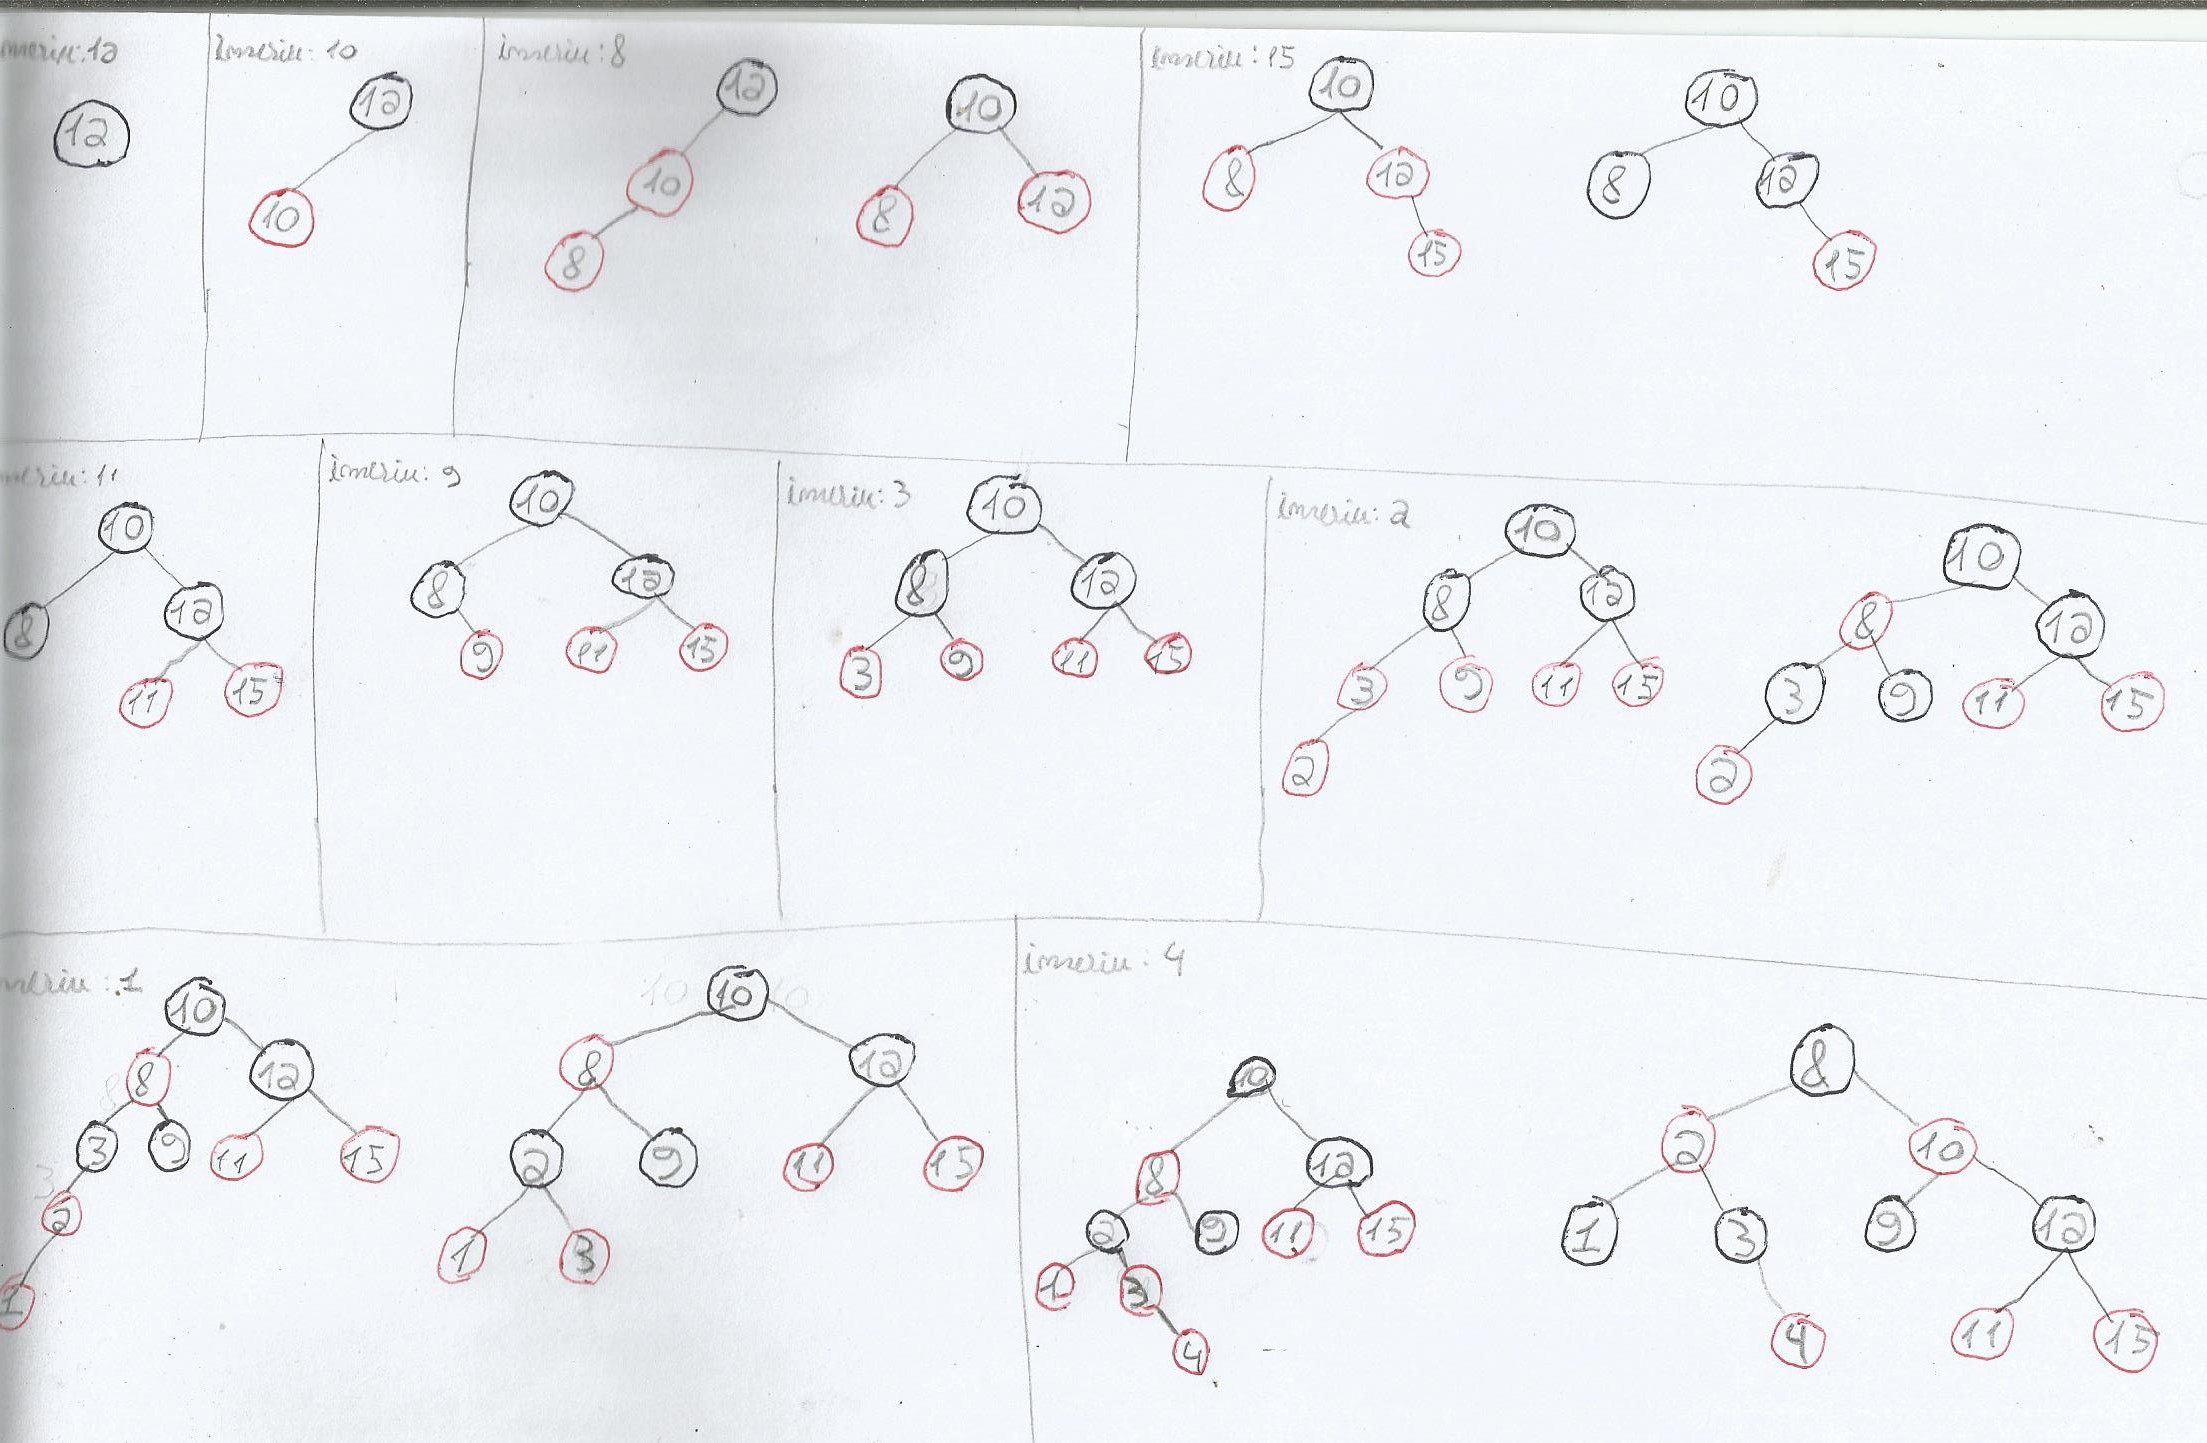 inserir: 12
12
inserir: 10
12
10
inserir: 8
12
10
8
10
8 12
inserir: 15
10
8 12
15
10
8 12
15
inserir: 11
10
8 12
11 15
inserir: 9
10
8 12
9 11 15
inserir: 3
10
8 12
3 9 11 15
inserir: 2
10
8 12
3 9 11 15
2
10
8 12
3 9 11 15
2
inserir: 1
10
8 12
3 9 11 15
2
1
10
8 12
2 9 11 15
1 3
inserir: 4
10
8 12
2 9 11 15
1 3
4
8
2 10
1 3 9 12
4 11 15